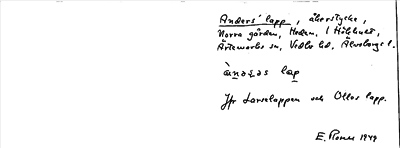 Anders' lapp, åkerstycke,
Norra gården, Heden, 1 Mtl,
Ärtemarks sn, Vedbo hd, Älvsborgs l.
lap
Jfr Larselappen och Ollos lapp.
E. 1949